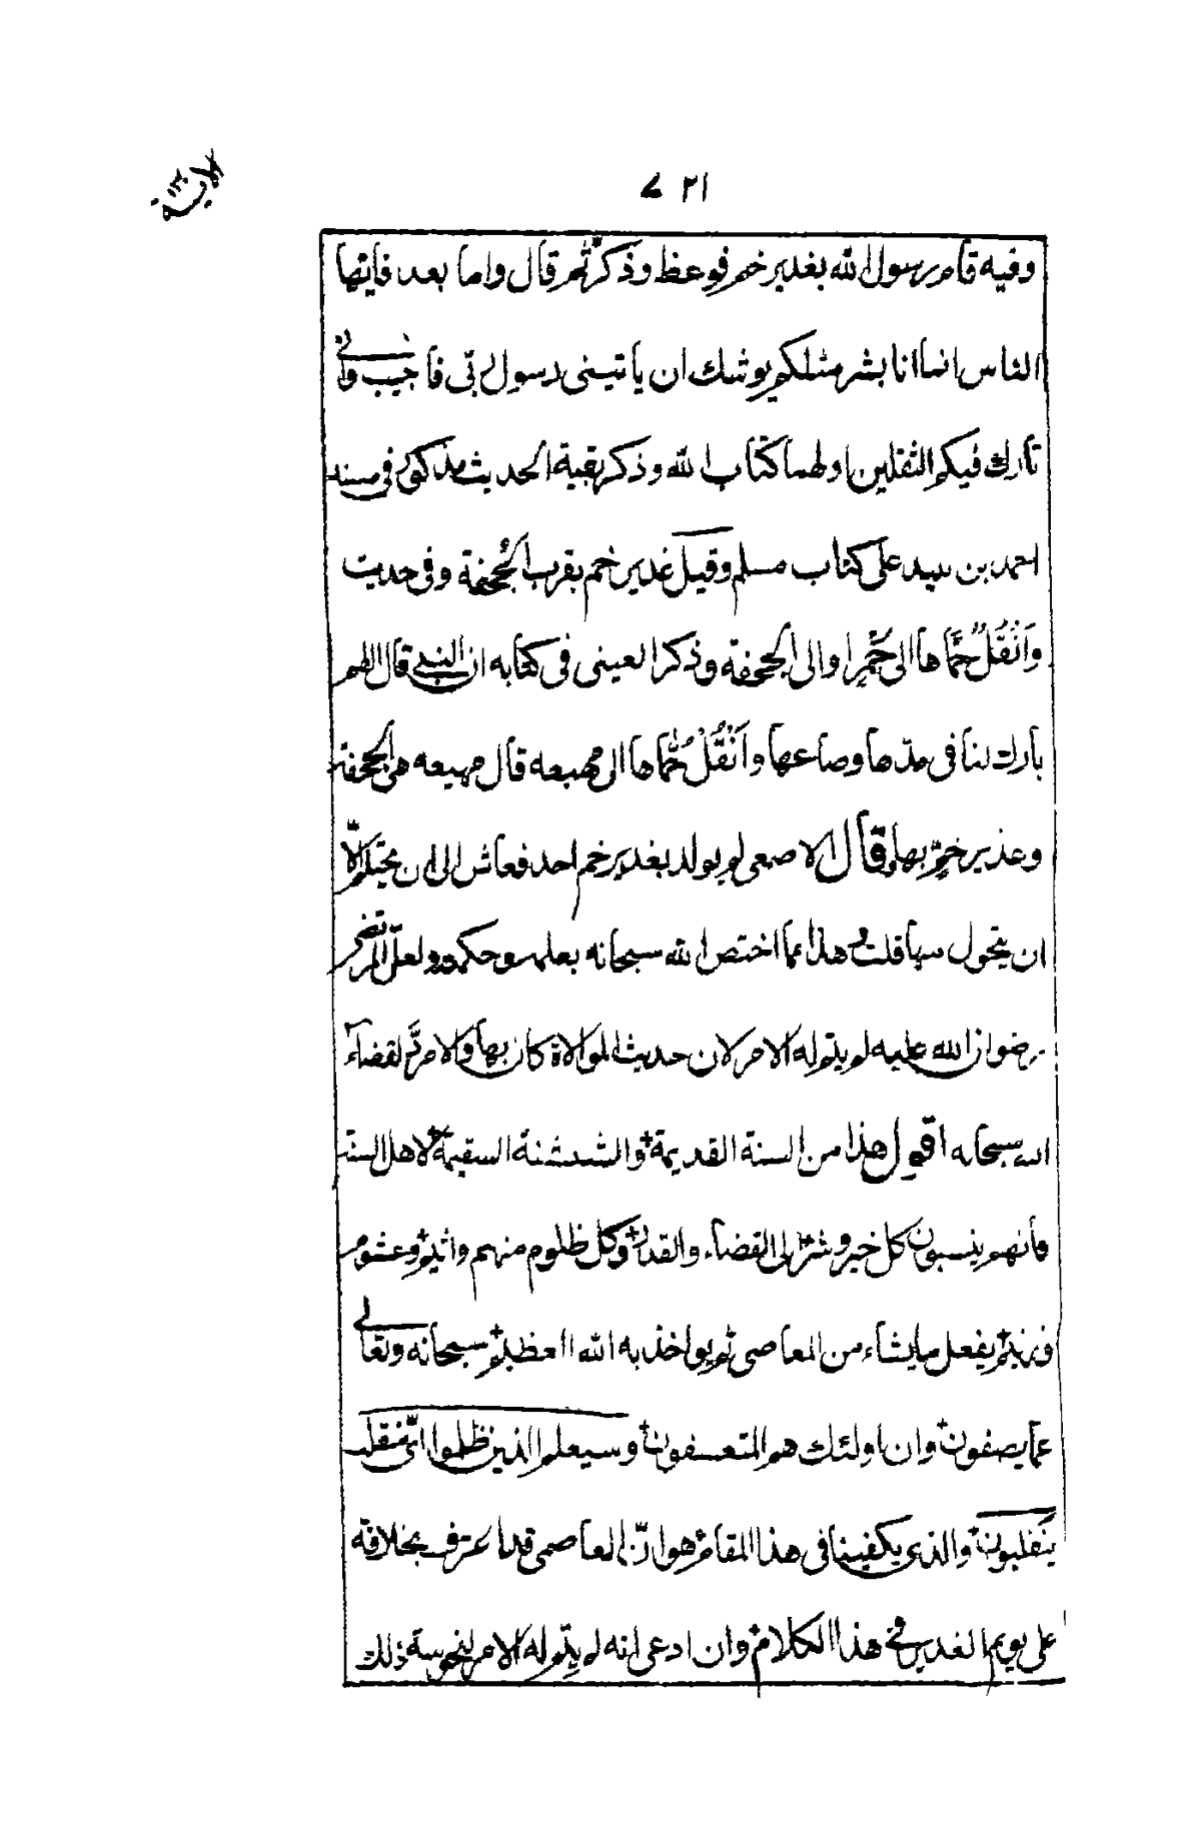 ٢١ ے
وفيه قام رسول الله بغدير خم فوعظ وذكّر ثم قال واما بعد فايّها
الناس انما انا بشر مثلكم يوشك ان ياتيني رسول ربّي فاجيب واني
تارك فيكم الثقلين اولهما كتاب الله وذكر بقية الحديث مذكور في مسند
احمد بن على كتاب مسلم وقيل غدير خم بقرب الجُحفة وفي حديث
وَانْقُلْ حُمَّاها الى خُمّ او الى الجحفة وذكر العينى فى كتابه ان النبي قال اللهم
بارك لنا فى مدّها وصاعها وَانْقُلْ حُمَّاها الى مهيعه قال مهيعه هي الجحفة
وغدير خمّ بها وقال الاصمعى لم يولد بغدير خم احد فعاش الى ان يحتلم الّا
ان يتحول منها قلت وهذا مما اختص الله سبحانه بعلمه وحكمه ولعلّ المرتضى
رضوان الله عليه لم يتم له الامر لان حديث الموالاة كان بها والامر مردّ لقضاء
الله سبحانه اقول هذا من السنة القديمة والشنشنة السقيمة لاهل السنة
فانهم ينسبون كل خير وشر الى القضاء والقدر وكل ظلوم منهم واثيم وغشوم
وزنيم يفعل ما يشاء من المعاصى ثم يواخذ به الله العظيم سبحانه وتعالى
عما يصفون وان اولئك هم المتعسفون وسيعلم الذين ظلموا ايّ منقلب
ينقلبون والذى يكفينا فى هذا المقام هو انّ العاصمى قد اعترف بخلافة
على يوم الغدير فى هذا الكلام وان ادعى انه لم يتم له الامر لنحوسة ذلك